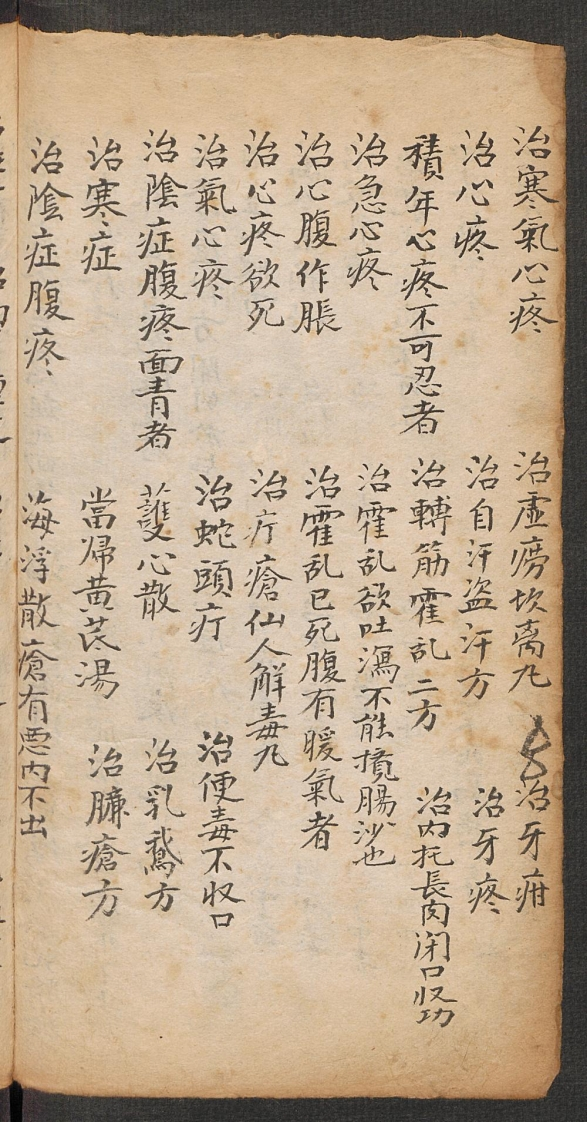 治寒氣心疼
治心疼
積年心疼不可忍者
治急心疼
治心腹作脹
治心疼欲死
治氣心疼
治陰症腹疼面青者
治寒症
治陰症腹疼
治虛癆坎离九
治自汗盗汗方
治轉筋霍乱二方
治霍乱欲吐瀉不能攪腸沙也
治霍乱已死腹有暖氣者
治疔瘡仙人解毒九
治蛇頭疔
護心散
當帰黄芪湯
海浮散瘡有悪肉不出
治牙疳
治牙疼
治内托長肉闭口收功
治便毒不收口
治乳鵞方
治臁瘡方